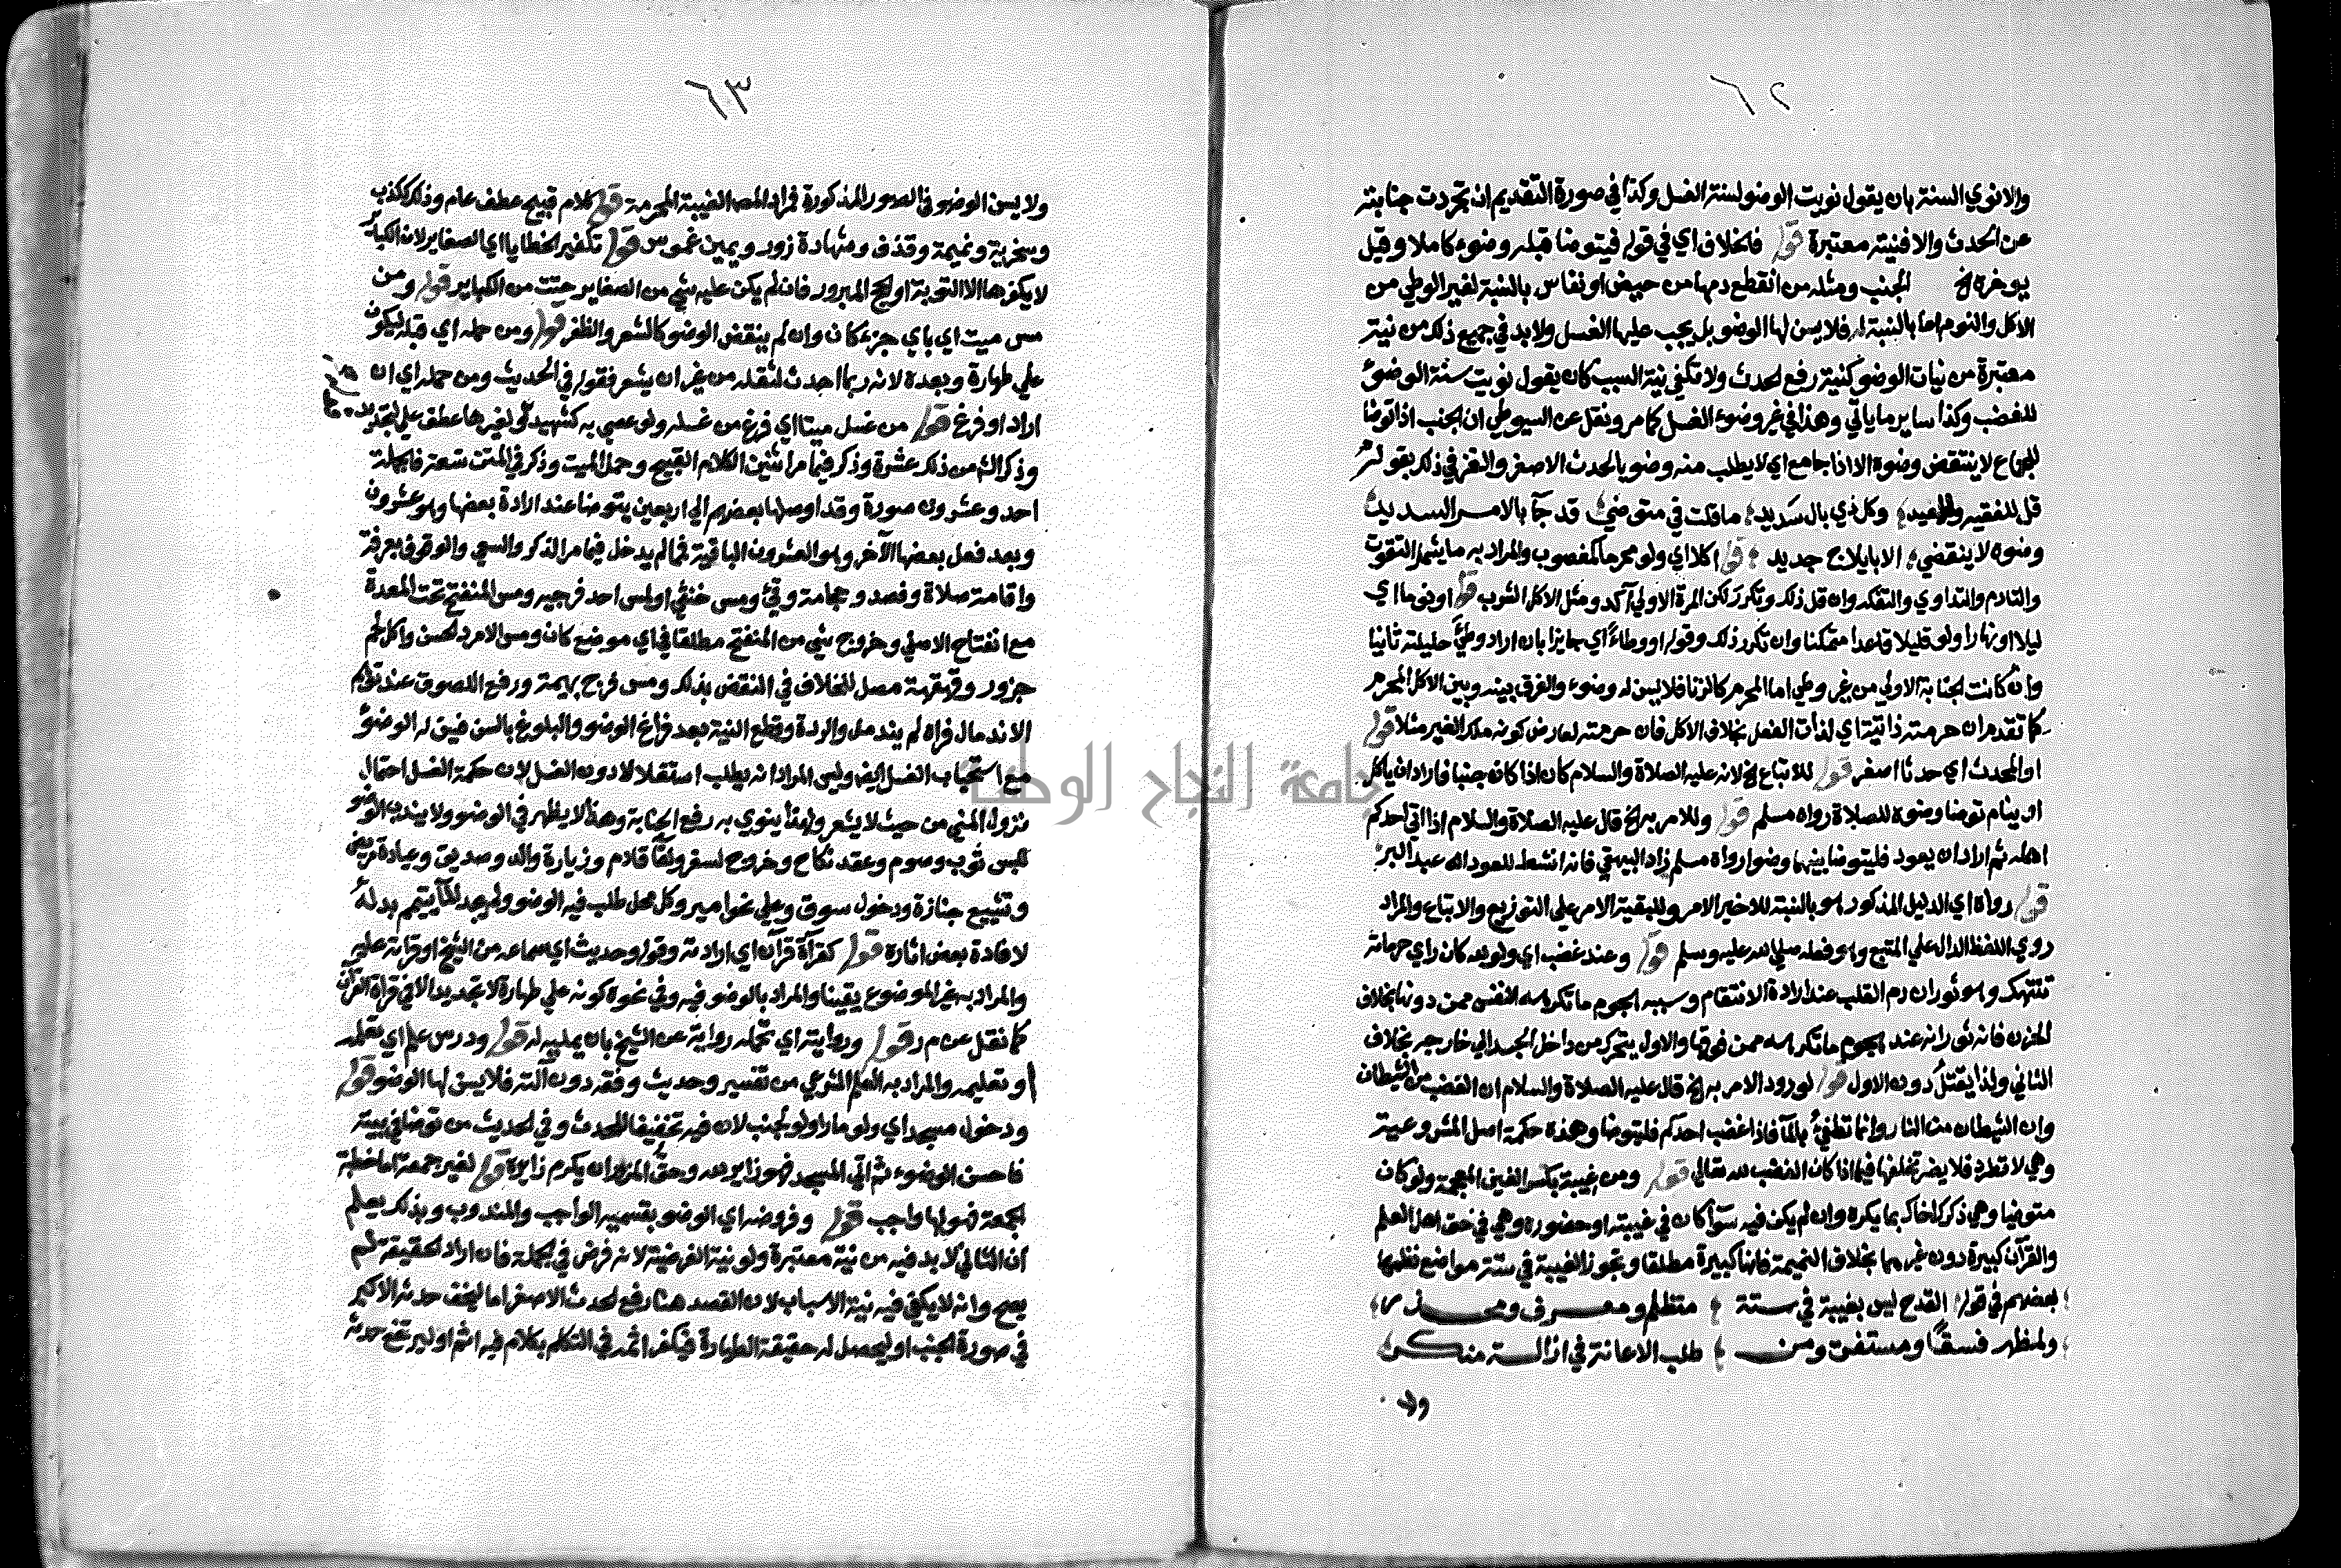 ٦٢
والا نوي السنة بان يقول نويت الوضو لسنة الغسل وكذا في صورة التقديم ان تجردت جنابته
عن الحدث والا فنيته معتبرة قوله فالخلاف اي في قوله فيتوضا قبله وضوء كاملا وقيل
يوخره الخ الجنب ومثله من انقطع دمها من حيض او نفاس بالنسبة لغير الوطي من
الاكل والنوم اما بالنسبة له فلا يسن لها الوضو بل يجب عليها الغسل ولا بد في جميع ذلك من نية
معتبرة من نيات الوضو كنية رفع الحدث ولا تكفي نية السبب كان يقول نويت سنة الوضوء
للغضب وكذا ساير ما ياتي وهذا في غير وضوء الغسل كما مر ونقل عن السيوطي ان الجنب اذا توضا
للجماع لا ينتقض وضوه الا اذا جامع اي لا يطلب منه وضو بالحدث الاصغر والغز في ذلك بقوله
قل للفقيه وللمفيد وكل ذي بال سديد ما قلت في متوضي قد جآ بالامر السديد
وضوه لا ينقضي الا بايلاج جديد قوله اكلا اي ولو محرما كمغصوب والمراد به ما يشمل التقوت
والتادم والتداوي والتفكه وان قل ذلك وتكرر لكن المرة الاولي آكد ومثل الاكل الشرب قوله او نوما اي
ليلا او نهارا ولو قليلا قاعدا متمكنا وان تكرر ذلك وقوله او وطاءً اي جايزا بان اراد وطيَ حليلته ثانيا
وان كانت الجنابة الاولي من غير وطي اما المحرم كالزنا فلا يسن له وضوء والفرق بينه وبين الاكل المحرم
كما تقدم ان حرمته ذاتية اي لذات الفعل بخلاف الاكل فان حرمته لعارض كونه ملك الغير مثلا قوله
او المحدث اي حدثا اصغر قوله للاتباع الخ لانه عليه الصلاة والسلام كان اذا كان جنبا فاراد ان ياكل
او ينام توضا وضوه للصلاة رواه مسلم قوله وللامر به الخ قال عليه الصلاة والسلام اذا اتي احدكم
اهله ثم اراد ان يعود فليتوضا بينهما وضوا رواه مسلم زاد البيهقي فانه انشط للعود اه عبد البر
قوله رواه اي الدليل المذكور هو بالنسبة للاخير الامر وللبقية الامر علي التوزيع والاتباع والمراد
روي اللفظ الدال علي المتبع وهو فعله صلي الله عليه وسلم قوله وعند غضب اي ولو لله كان راي حرماته
تنتهك وهو ثوران دم القلب عند ارادة الانتقام وسببه هجوم ما تكرهه النفس ممن دونها بخلاف
الحزن فانه ثورانه عند هجوم ما تكرهه ممن فوقها والاول يتحرك من داخل الجسد الي خارجه بخلاف
الثاني ولذا يقتل دون الاول قوله لورود الامر به الخ قال عليه الصلاة والسلام ان الغضب من الشيطان
وان الشيطان من النار وانما تطفئ بالمآ فاذا غضب احدكم فليتوضا وهذه حكمة اصل المشروعية
وهي لا تطرد فلا يضر تخلفها فيما اذا كان الغضب لله تعالي قوله ومن غيبة بكسر الغين المعجمة ولو كان
متوضيا وهي ذكرك اخاك بما يكره وان لم يكن فيه سوآ كان في غيبته او حضوره وهي في حق اهل العلم
والقرآن كبيرة دون غيرهما بخلاف النميمة فانها كبيرة مطلقا وتجوز الغيبة في ستة مواضع نظمها
بعضهم في قوله القدح ليس بغيبة في ستة متظلم ومعرف ومحذر
ولمظهر فسقًا ومستفت ومن طلب الاعانة في ازالة منكر
ولا
٦٣
ولا يسن الوضو في الصور المذكورة فمراد المص الغيبة المحرمة قوله كلام قبيح عطف عام وذلك ككذب
وسخرية ونميمة وقذف وشهادة زور ويمين غموس قوله تكفير الخطايا اي الصغاير لان الكباير
لا يكفرها الا التوبة او الحج المبرور فان لم يكن عليه شي من الصغاير حتت من الكباير قوله ومن
مس ميت اي باي جزء كان وان لم ينقض الوضو كالشعر والظفر قوله ومن حمله اي قبله ليكون
علي طهارة وبعده لانه ربما احدث لثقله من غير ان يشعر فقوله في الحديث ومن حمله اي ان
اراد او فرغ قوله من غسل ميتا اي فرغ من غسله ولو عصي به كشهيد قوله لغيرها عطف علي لتجديد
وذكر الش من ذلك عشرة وذكر فيما مر اثنين الكلام القبيح وحمل الميت وذكر في المتن تسعة فالجملة
احد وعشرون صورة وقد اوصلها بعضهم الي اربعين يتوضا عند ارادة بعضها وهو عشرون
وبعد فعل بعضها الآخر وهو العشرون الباقية فما لم يدخل فيما مر الذكر والسعي والوقوف بعرفة
واقامة صلاة وفصد وحجامة وقيئ ومس خنثي او لمس احد فرجيه ومس المنفتح تحت المعدة
مع انفتاح الاصلي وخروج شي من المنفتح مطلقا في اي موضع كان ومس الامرد الحسن واكل لحم
جزور وقهقهة مصل للخلاف في النقض بذلك ومس فرج بهيمة ورفع اللصوق عند توهم
الاندمال فراه لم يندمل والردة وقطع النية بعد فراغ الوضو والبلوغ بالسن فيسن له الوضوء
مع استحباب الغسل ايضا وليس المراد انه يطلب استقلالا دون الغسل لان حكمة الغسل احتمال
نزول المني من حيث لا يشعر ولهذا ينوي به رفع الجنابة وهذا لا يظهر في الوضو ولا يندب الوضو
للبس ثوب وصوم وعقد نكاح وخروج لسفر ولقآ قادم وزيارة والد وصديق وعيادة مريض
وتشييع جنازة ودخول سوق وعلي نحو امير وكل محل طلب فيه الوضو ولم يجد المآ يتيمم بدله
لافادة بعض اثاره قوله كقرآة قرآن اي ارادته وقوله وحديث اي سماعه من الشيخ او قرآته عليه
والمراد به غير الموضوع يقينا والمراد بالوضو فيه وفي نحوه كونه علي طهارة لا تجديد الا في قرآة القرآن
كما نقل عن م ر قوله وروايته اي تحمله رواية عن الشيخ بان يمليه له قوله ودرس علم اي تعلمه
او تعليمه والمراد به العلم الشرعي من تفسير وحديث وفقه دون آلته فلا يسن لها الوضو قوله
ودخول مسجد اي ولو مارا ولو لجنب لان فيه تخفيفا للحدث وفي الحديث من توضا في بيته
فاحسن الوضوء ثم اتي المسجد فهو زاير لله وحق المزور ان يكرم زايره قوله لغير جمعة اما خطبة
الجمعة فهو لها واجب قوله وفروضه اي الوضو بقسميه الواجب والمندوب وبذلك يعلم
ان الثاني لا بد فيه من نية معتبرة ولو نية الفرضية لانه فرض في الجملة فان اراد الحقيقة لم
يصح وانه لا يكفي فيه نية الاسباب لان القصد هنا رفع الحدث الاصغر اما ليخف حدثه الاكبر
في صورة الجنب او ليحصل له حقيقة الطهارة فيكفر اثمه في التكلم بكلام فيه اثم او ليرتفع حدثه
جامعة النجاح الوطنية